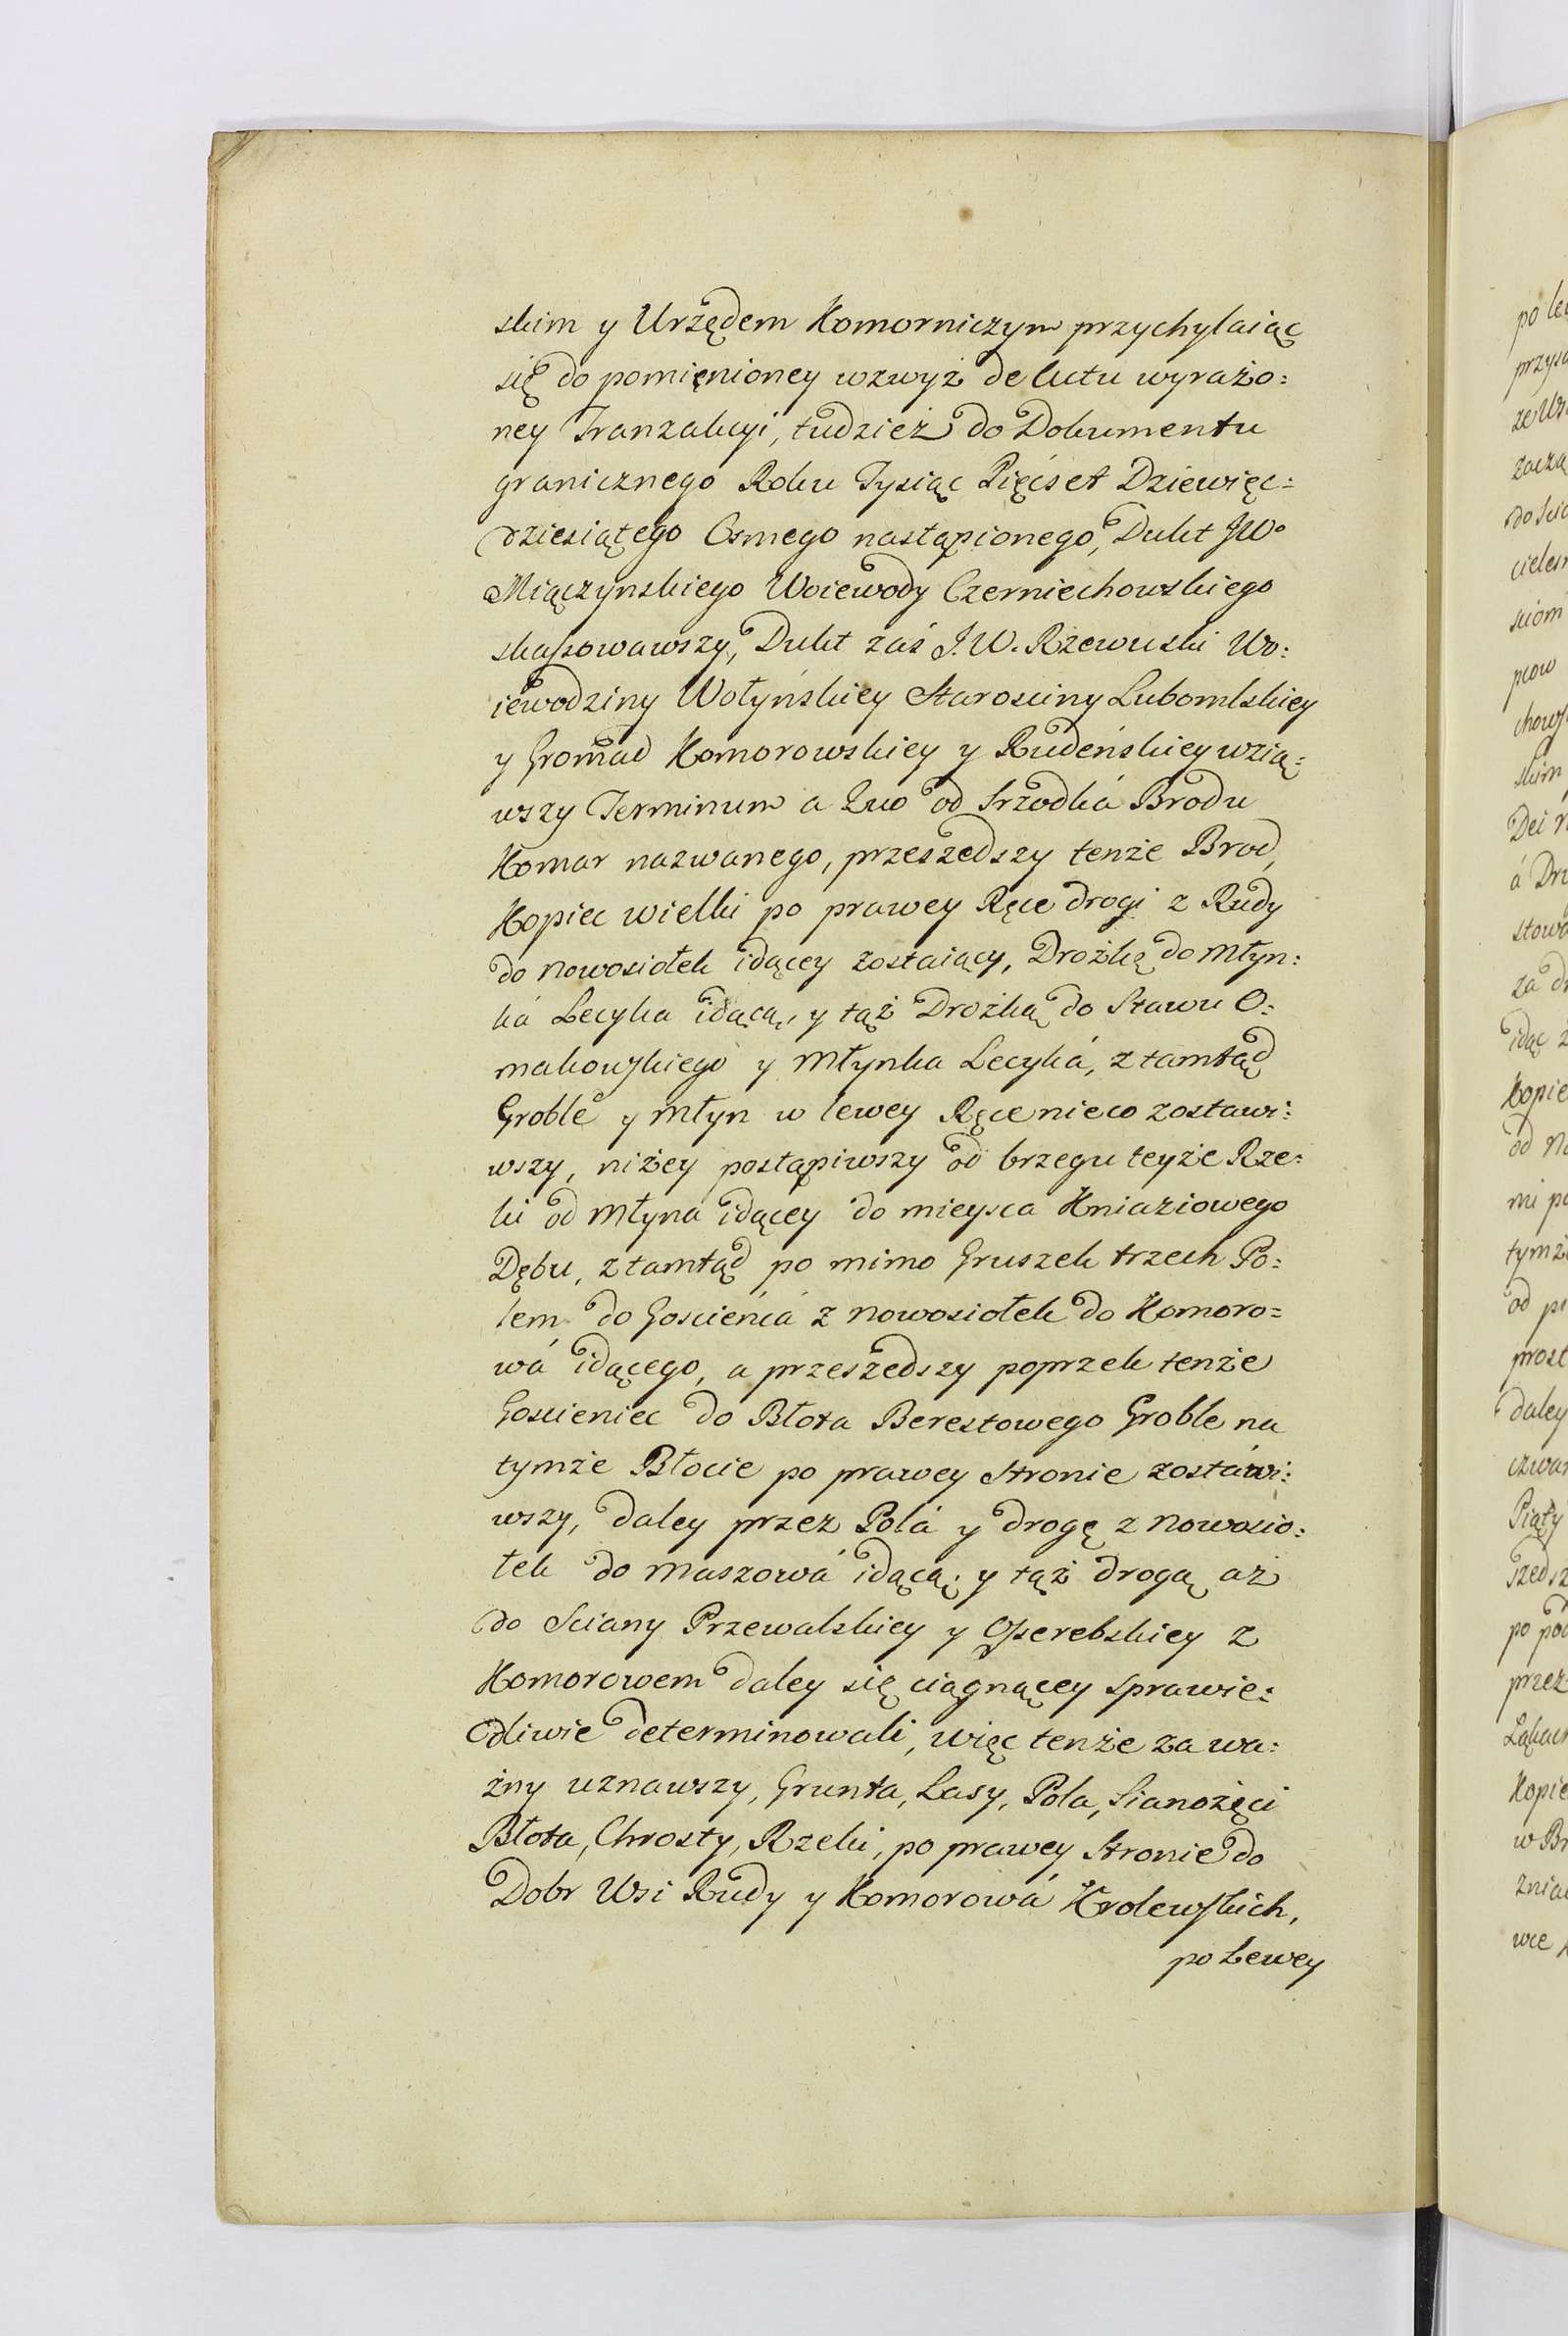 skim y Urzędem Komorniczym przychylaiąc
się do pomięnioney wzwyż de lutu wyrażo:
ney Tranzakcyi, tudzież do Dokumentu
granicznego Roku Tysiąc Pięćset Dziewięc:
dziesiątego Osmego nastąpionego, Dukt JWo
Miączynskiego Woiewody Czerniechowskiego
skassowawszy, Dukt zaś J.W. Rzewuski Wo:
iewodziny Wołyńskiey Starosciny Lubomlskiey
y Gromad Komorowskiey y Rudeńskiey wzią:
wszy Terminum a Quo od Srzodká Brodu
Komar nazwanego, przeszedszy tenże Brod,
Kopiec wielki po prawey Ręce drogi z Rudy
do Nowosiołek idącey zostaiący, Drożką do Młyn:
ká Lecyka idącą, y tąż Drożką do Stawu O:
makowskiego y Młynka Lecyká, ztamtąd
Groble y Młyn w lewey Ręce nieco zostawi:
wszy, niżey postąpiwszy od brzegu teyże Rze:
ki od Młyna idącey do mieysca Kniaziowego
Dębu, ztamtąd po mimo Gruszek trzech Po:
lem do Goscieńcá z Nowosiołek do Komoro=
wá idącego, a przeszedszy poprzek tenże
Gosceniec do Błota Berestowego Groble na
tymże Błocie po prawey Stronie zostáwi:
wszy, daley przez Polá y drogę z Nowosio:
łek do Maszowá idącą; y tąż drogą aż
do Sciany Przewalskiey y Osserebskiey z
Komorowem daley się ciągnącey sprawie:
dliwie determinowali, więc tenże za wa:
żny uznawszy, Grunta, Lasy, Pola, Sianożęci
Błota, Chrosty, Rzeki, po prawey Stronie do
Dobr Wsi Rudy y Komorowá Krolewskich,
po Lewey